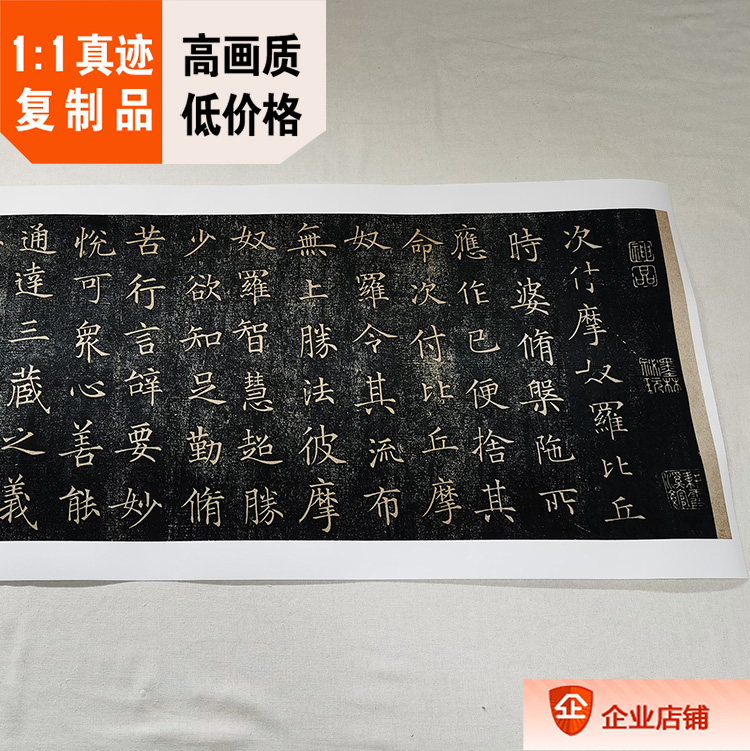 1:1真迹
复制品
高画质
低价格
次付摩奴羅比丘
時婆脩槃陁所
應作已便捨其
命次付比丘摩
奴羅令其流布
無上勝法彼摩
奴羅智慧超勝
少欲知足勤脩
苦行言辭要妙
悅可衆心善能
通達三藏之義
神品
墨林
企
企业店铺